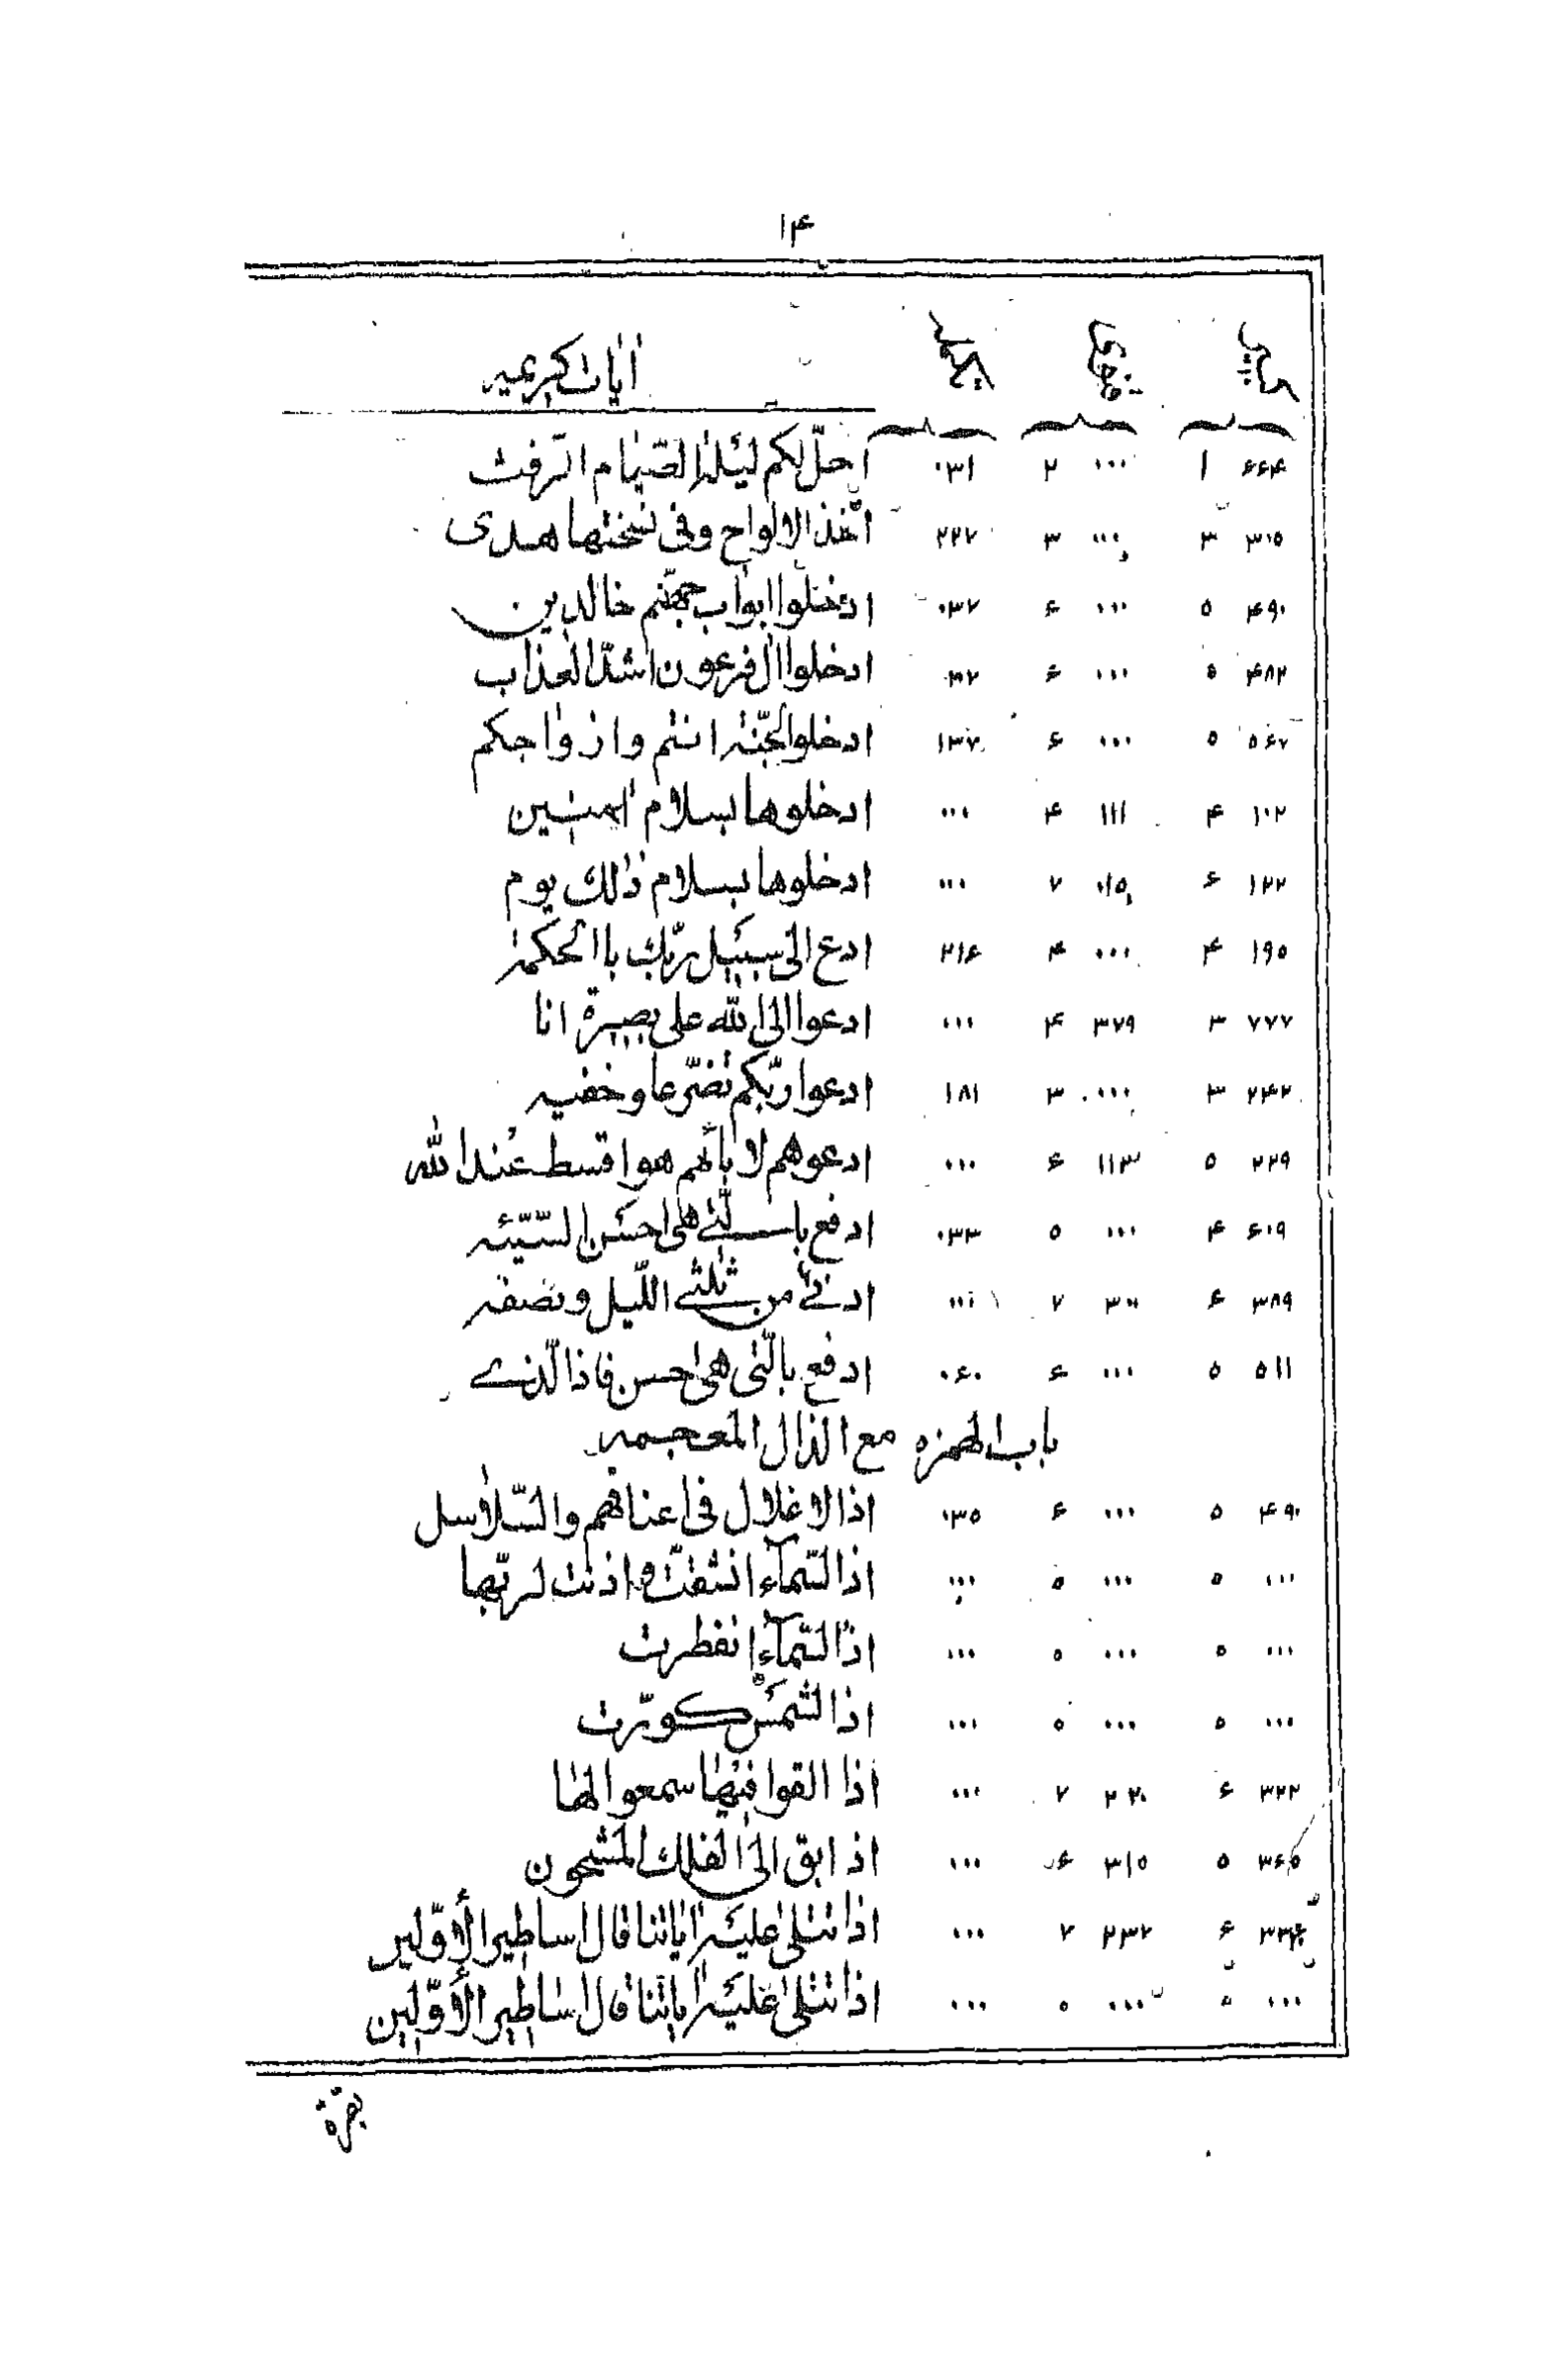 ۱۴
اٰیات کریمیه
۶۶۴ ۱ ۰۰۰ ۲ ۰۳۱ احلّ لکم لیلة الصّیام الرّفث
۳۱۵ ۳ ۰۰۰ ۳ ۲۲۷ اتّخذ الالواح وفی نسختها هدی
۴۹۰ ۵ ۰۰۰ ۶ ۰۳۷ ادخلوا ابواب جهنّم خالدین
۴۸۲ ۵ ۰۰۰ ۶ ادخلوا اٰل فرعون اشدّ العذاب
۵۶۷ ۵ ۰۰۰ ۶ ۱۳۷ ادخلوا الجنّة انتم وازواجکم
۱۰۲ ۴ ۱۱۱ ۴ ۰۰۰ ادخلوها بسلام اٰمنین
۱۲۲ ۶ ۷ ۰۰۰ ادخلوها بسلام ذٰلك یوم
۱۹۵ ۴ ۰۰۰ ۴ ۲۱۶ ادع الی سبیل ربّك باالحکمة
۷۷۷ ۳ ۳۷۹ ۴ ۰۰۰ ادعوا الی الله علی بصیرة انا
۲۴۲ ۳ ۰۰۰ ۳ ۱۸۱ ادعوا ربّکم تضرّعا وخفیه
۲۲۹ ۵ ۱۱۳ ۶ ۰۰۰ ادعوهم لاٰبائهم هو اقسط عند الله
۶۰۹ ۴ ۰۰۰ ۵ ۰۳۳ ادفع بالّتی هی احسن السّیّئه
۳۸۹ ۶ ۳۰۰ ۷ ۰۰۰ ادنی من ثلثی اللّیل ونصفه
۵۱۱ ۵ ۰۰۰ ۶ ۰۶۰ ادفع بالّتی هی احسن فاذا لّذی
باب الهمزه مع الذال المعجمه
۴۹۰ ۵ ۰۰۰ ۶ ۰۳۵ اذ الاغلال فی اعناقهم والسّلاسل
۰۰۰ ۵ ۰۰۰ ۵ ۰۰۰ اذا السّمآء انشقّت واذنت لربّها
۰۰۰ ۵ ۰۰۰ ۵ ۰۰۰ اذا السّمآء انفطرت
۰۰۰ ۵ ۰۰۰ ۵ ۰۰۰ اذا الشّمس کوّرت
۳۲۲ ۶ ۲۲۰ ۷ ۰۰۰ اذا القوا فیها سمعوا لها
۳۶۵ ۵ ۳۱۵ ۶ ۰۰۰ اذ ابق الی الفلك المشحون
۶ ۲۳۲ ۷ ۰۰۰ اذا تتلی علیه اٰیاتنا قال اساطیر الأوّلین
۰۰۰ ۵ ۰۰۰ ۵ ۰۰۰ اذا تتلی علیه اٰیاتنا قال اساطیر الأوّلین